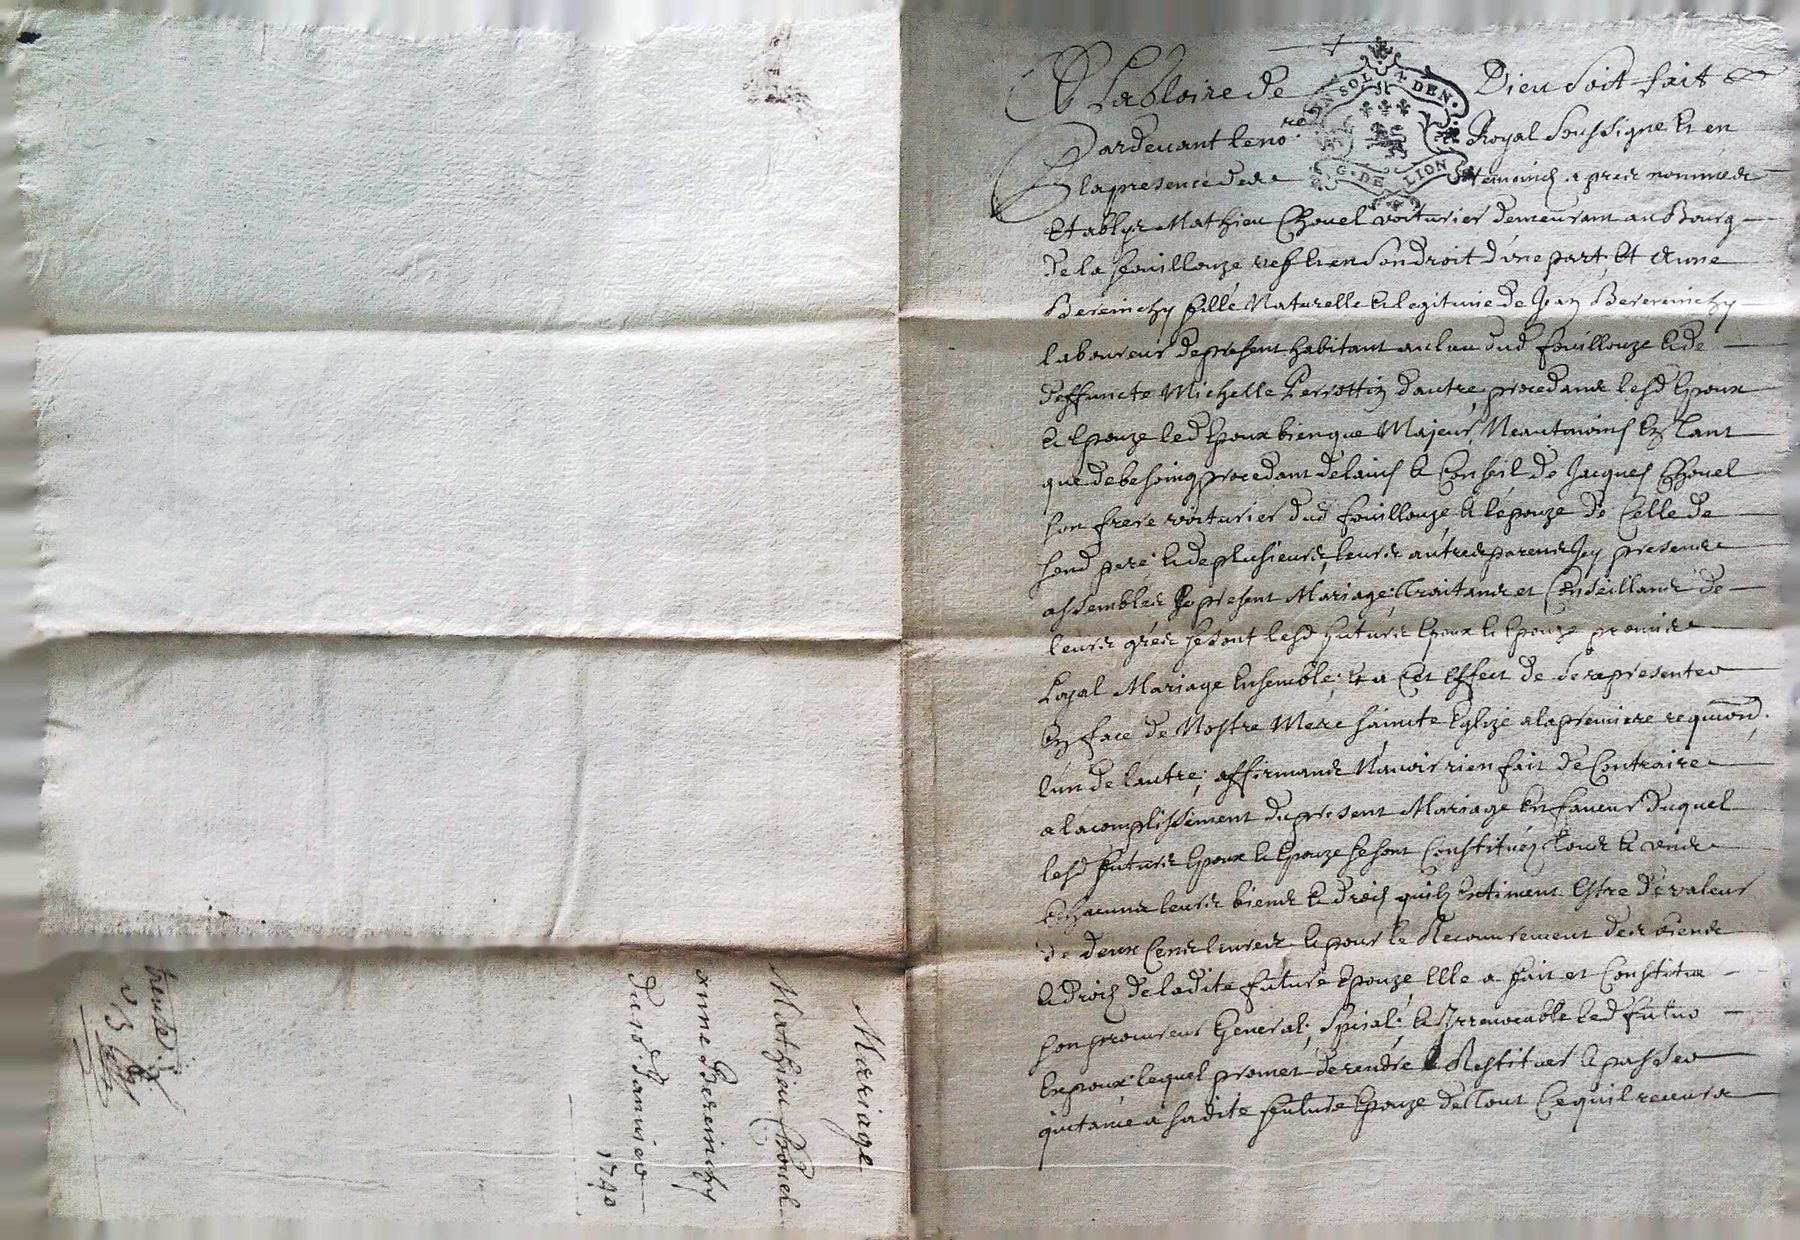 A La Gloire de Dieu soit fait &
Pardevant le no.re Royal soussigné & en
la presence des temoins apres nommes
Etablys Mathieu Chovel voiturier demeurant au Bourg
de la fouillouze & en son droit d'une part, Et Anne
Bereinchy fille Naturelle & legitime de Jean Bereinchy
laboureur de present habitant au lieu dud fouillouze & de
deffuncte Michelle Perrottin d'autre, procedants lesd Epoux
& Epouze led Epoux bien que Majeur Neantmoins En tant
que de besoing procedant de lavis & Conseil de Jacques Chovel
son frere voiturier dud fouillouze & lépouze de Celle de
sond pere & de plusieurs leurs autres parents Icy presents
assemblés Le present Mariage Traitants et Conseillants de
leurs grés se sont lesd futurs Epoux & Epouze promis
Loyal Mariage Ensemble, Et a Cet Effect de se representer
En face de Nostre Mere saincte Eglize a la premiere requion.
lun de lautre, affirmants Navoir rien fait de Contraire
a lacomplissement du present Mariage En faveur duquel
lesd futurs Epoux & Epouze se sont Constitués Tous & uns
Chacuns leurs biens & droits quils Estiment Estre de valeur
de deux Cents livres & pour le Recouvrement des biens
& droits de ladite future Epouze Elle a fait et Constitue
son procureur General, Spicial, & Irrevocable led futur
Epoux lequel promet de rendre & Restituer & passer
quitance a sadite future Epouze de Tout Ce quil recevra
Mariage
Mathieu Chovel
anne Bereinchy
du 10 Janvier
1740